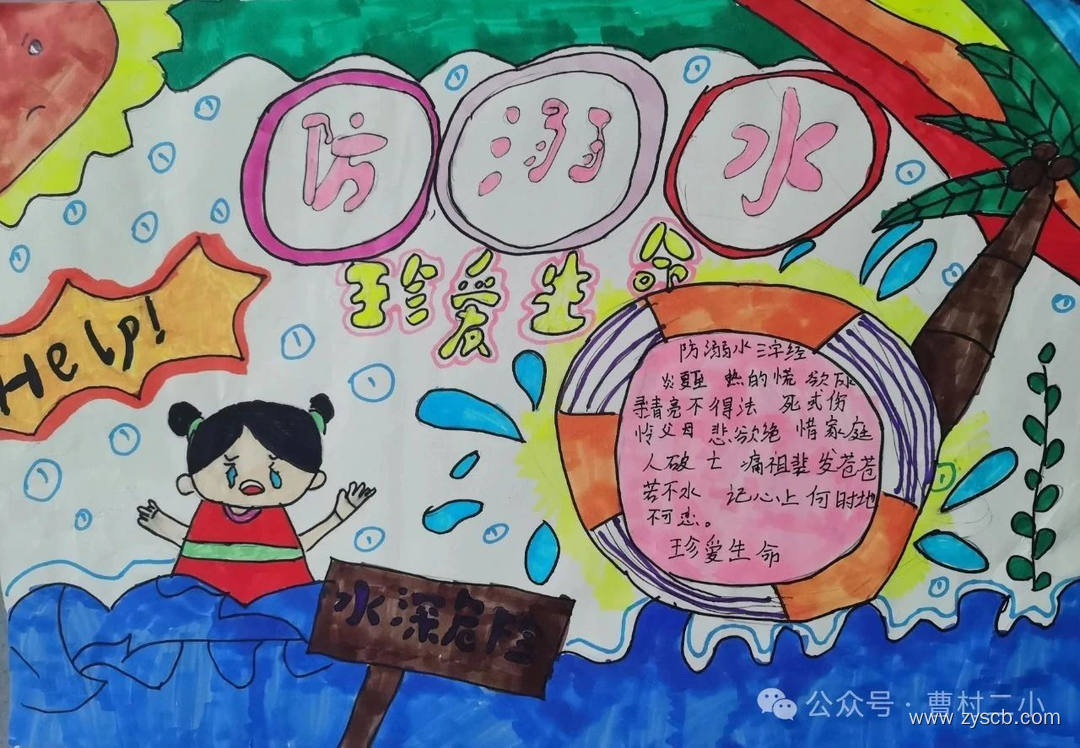 防溺水
珍爱生命
Help!
防溺水三字经
炎夏至 热的慌 欲
不得法 死或伤
怜父母 悲欲绝 惜家庭
人破亡 痛祖辈 发苍苍
若不水 记心上 何时地
不可忘。
珍爱生命
水深危险
公众号·曹村二小
www.zyscb.com